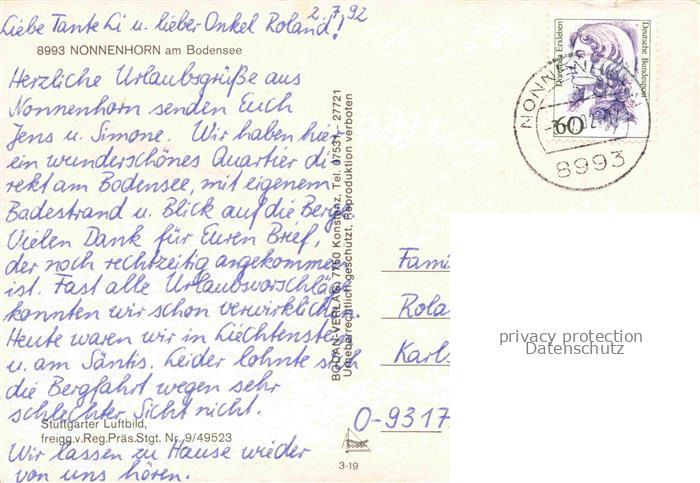 2.7.92
Liebe Tante Li u. lieber Onkel Roland!
8993 NONNENHORN am Bodensee
Herzliche Urlaubsgrüße aus
Nonnenhorn senden Euch
Jens u. Simone. Wir haben hier
ein wunderschönes Quartier di-
rekt am Bodensee, mit eigenem
Badestrand u. Blick auf die Berge.
Vielen Dank für Euren Brief,
der noch rechtzeitig angekommen
ist. Fast alle Urlaubsvorschläge
konnten wir schon verwirklichen.
Heute waren wir in Liechtenstein
u. am Säntis. Leider lohnte sich
die Bergfahrt wegen sehr
schlechter Sicht nicht.
Stuttgarter Luftbild,
freigg.v.Reg.Präs.Stgt. Nr. 9/49523
Wir lassen zu Hause wieder
von uns hören.
BODAN-VERLAG, 7750 Konstanz, Tel. 07531 - 27721
Urheberrechtlich geschützt, Reproduktion verboten
bodan
3-19
Dorothea Erxleben
Deutsche Bundespost
60
NONNENHORN
8993
Fami
Rola
Karls
O-9317
privacy protection
Datenschutz